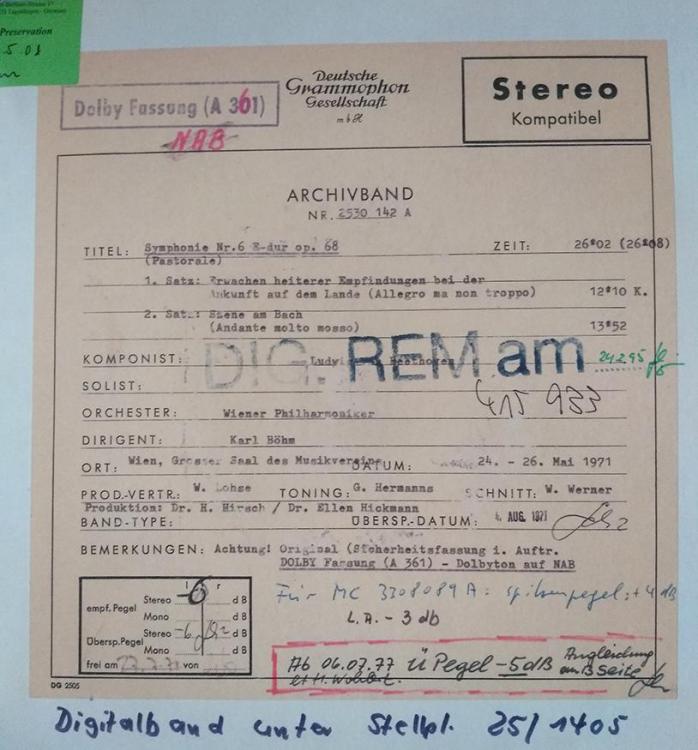 Preservation
5.01
Dolby Fassung (A 361)
NAB
Deutsche
Grammophon
Gesellschaft
mbH
Stereo
Kompatibel
ARCHIVBAND
NR. 2530 142 A
TITEL: Symphonie Nr.6 E-dur op. 68 ZEIT: 26"02 (26"08)
(Pastorale)
1. Satz: Erwachen heiterer Empfindungen bei der
Ankunft auf dem Lande (Allegro ma non troppo) 12"10 K.
2. Satz: Szene am Bach
(Andante molto mosso) 13"52
KOMPONIST: Ludwig Beethoven
DIG. REM am 24.2.95
SOLIST:
415 933
ORCHESTER: Wiener Philharmoniker
DIRIGENT: Karl Böhm
ORT: Wien, Grosser Saal des Musikvereins DATUM: 24. - 26. Mai 1971
PROD.-VERTR.: W. Lohse TONING: G. Hermanns SCHNITT: W. Werner
Produktion: Dr. H. Hirsch / Dr. Ellen Hickmann
BAND-TYPE: ÜBERSP.-DATUM: 4. AUG. 1971
BEMERKUNGEN: Achtung! Original (Sicherheitsfassung i. Auftr.
DOLBY Fassung (A 361) - Dolbyton auf NAB
Für MC 3308089 A: Spitzenpegel: +4 dB
L.A. - 3 db
l r
empf. Pegel Stereo -6 dB
Mono dB
Übersp.Pegel Stereo -6 dB
Mono dB
frei am von
Ab 06.07.77 Ü Pegel -5dB Angleichung
an B Seite
DG 2505
Digitalband unter Stellpl. 25/1405